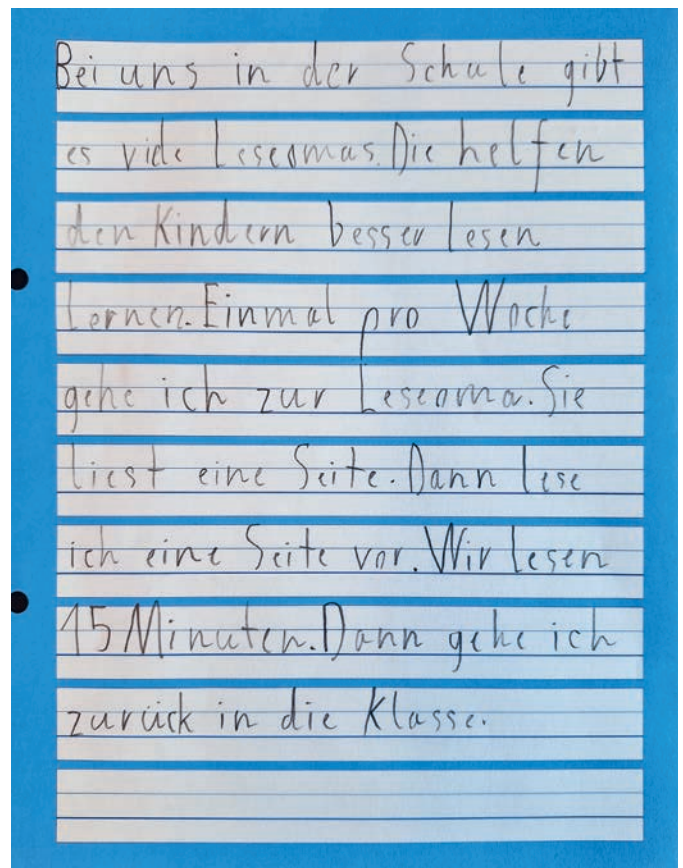 Bei uns in der Schule gibt
es viele Leseomas. Die helfen
den Kindern besser lesen
lernen. Einmal pro Woche
gehe ich zur Leseoma. Sie
liest eine Seite. Dann lese
ich eine Seite vor. Wir lesen
15 Minuten. Dann gehe ich
zurück in die Klasse.